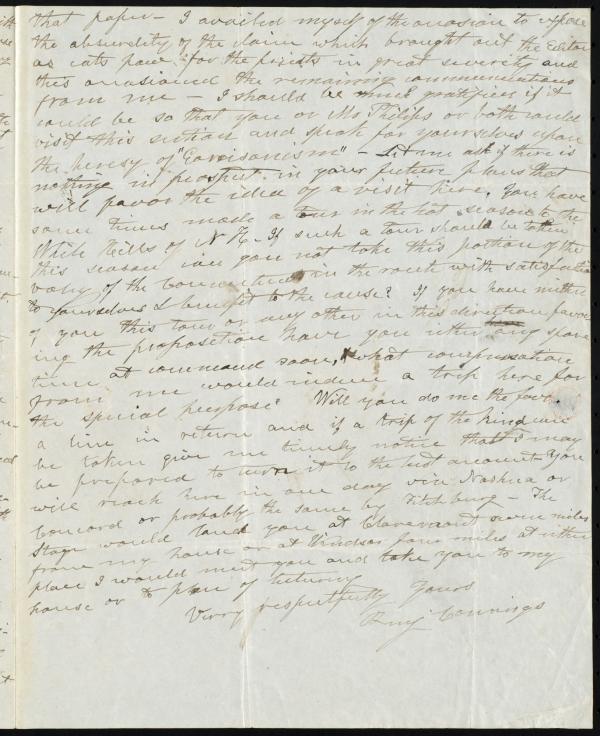 that paper – I availed myself of the occasion to expose
the absurdity of the claim which brought out the Editor
as cats paw for the priests in great severity and
this occasioned the remaining communications
from me – I should be much gratified if it
could be so that you or Mr Philips or both could
visit this section and speak for yourselves upon
the heresy of "Garrisonism" – Let me ask if there is
nothing in prospect in your future plans that
will favor the idea of a visit here. You have
some times made a tour in the hot season to the
White Hills of N H. If such a tour should be taken
this season can you not take this portion of the
valy of the Connecticut in the route with satisfaction
to yourselves & benefit to the cause? If you have neither
of you this tour or any other in this direction favor
ing the proposition have you either any spare
time at command soon, what compensation
from me would induce a trip here for
the special purpose? Will you do me the favor
a line in return and if a trip of the kind can
be taken give me timely notice that I may
be prepared to turn it to the best account – You
will reach here in one day via Nashua or
Concord or probably the same by Fitchburg – The
Stage would land you at Claremont seven miles
from my house or at Windsor four miles at either
place I would meet you and take you to my
house or to place of
Very respectfully Yours